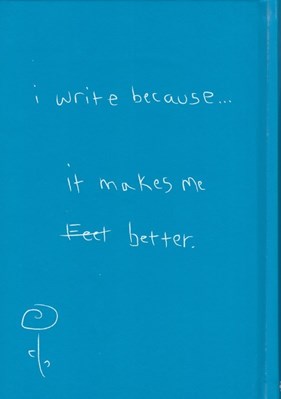 i write because...
it makes me
Feel better.